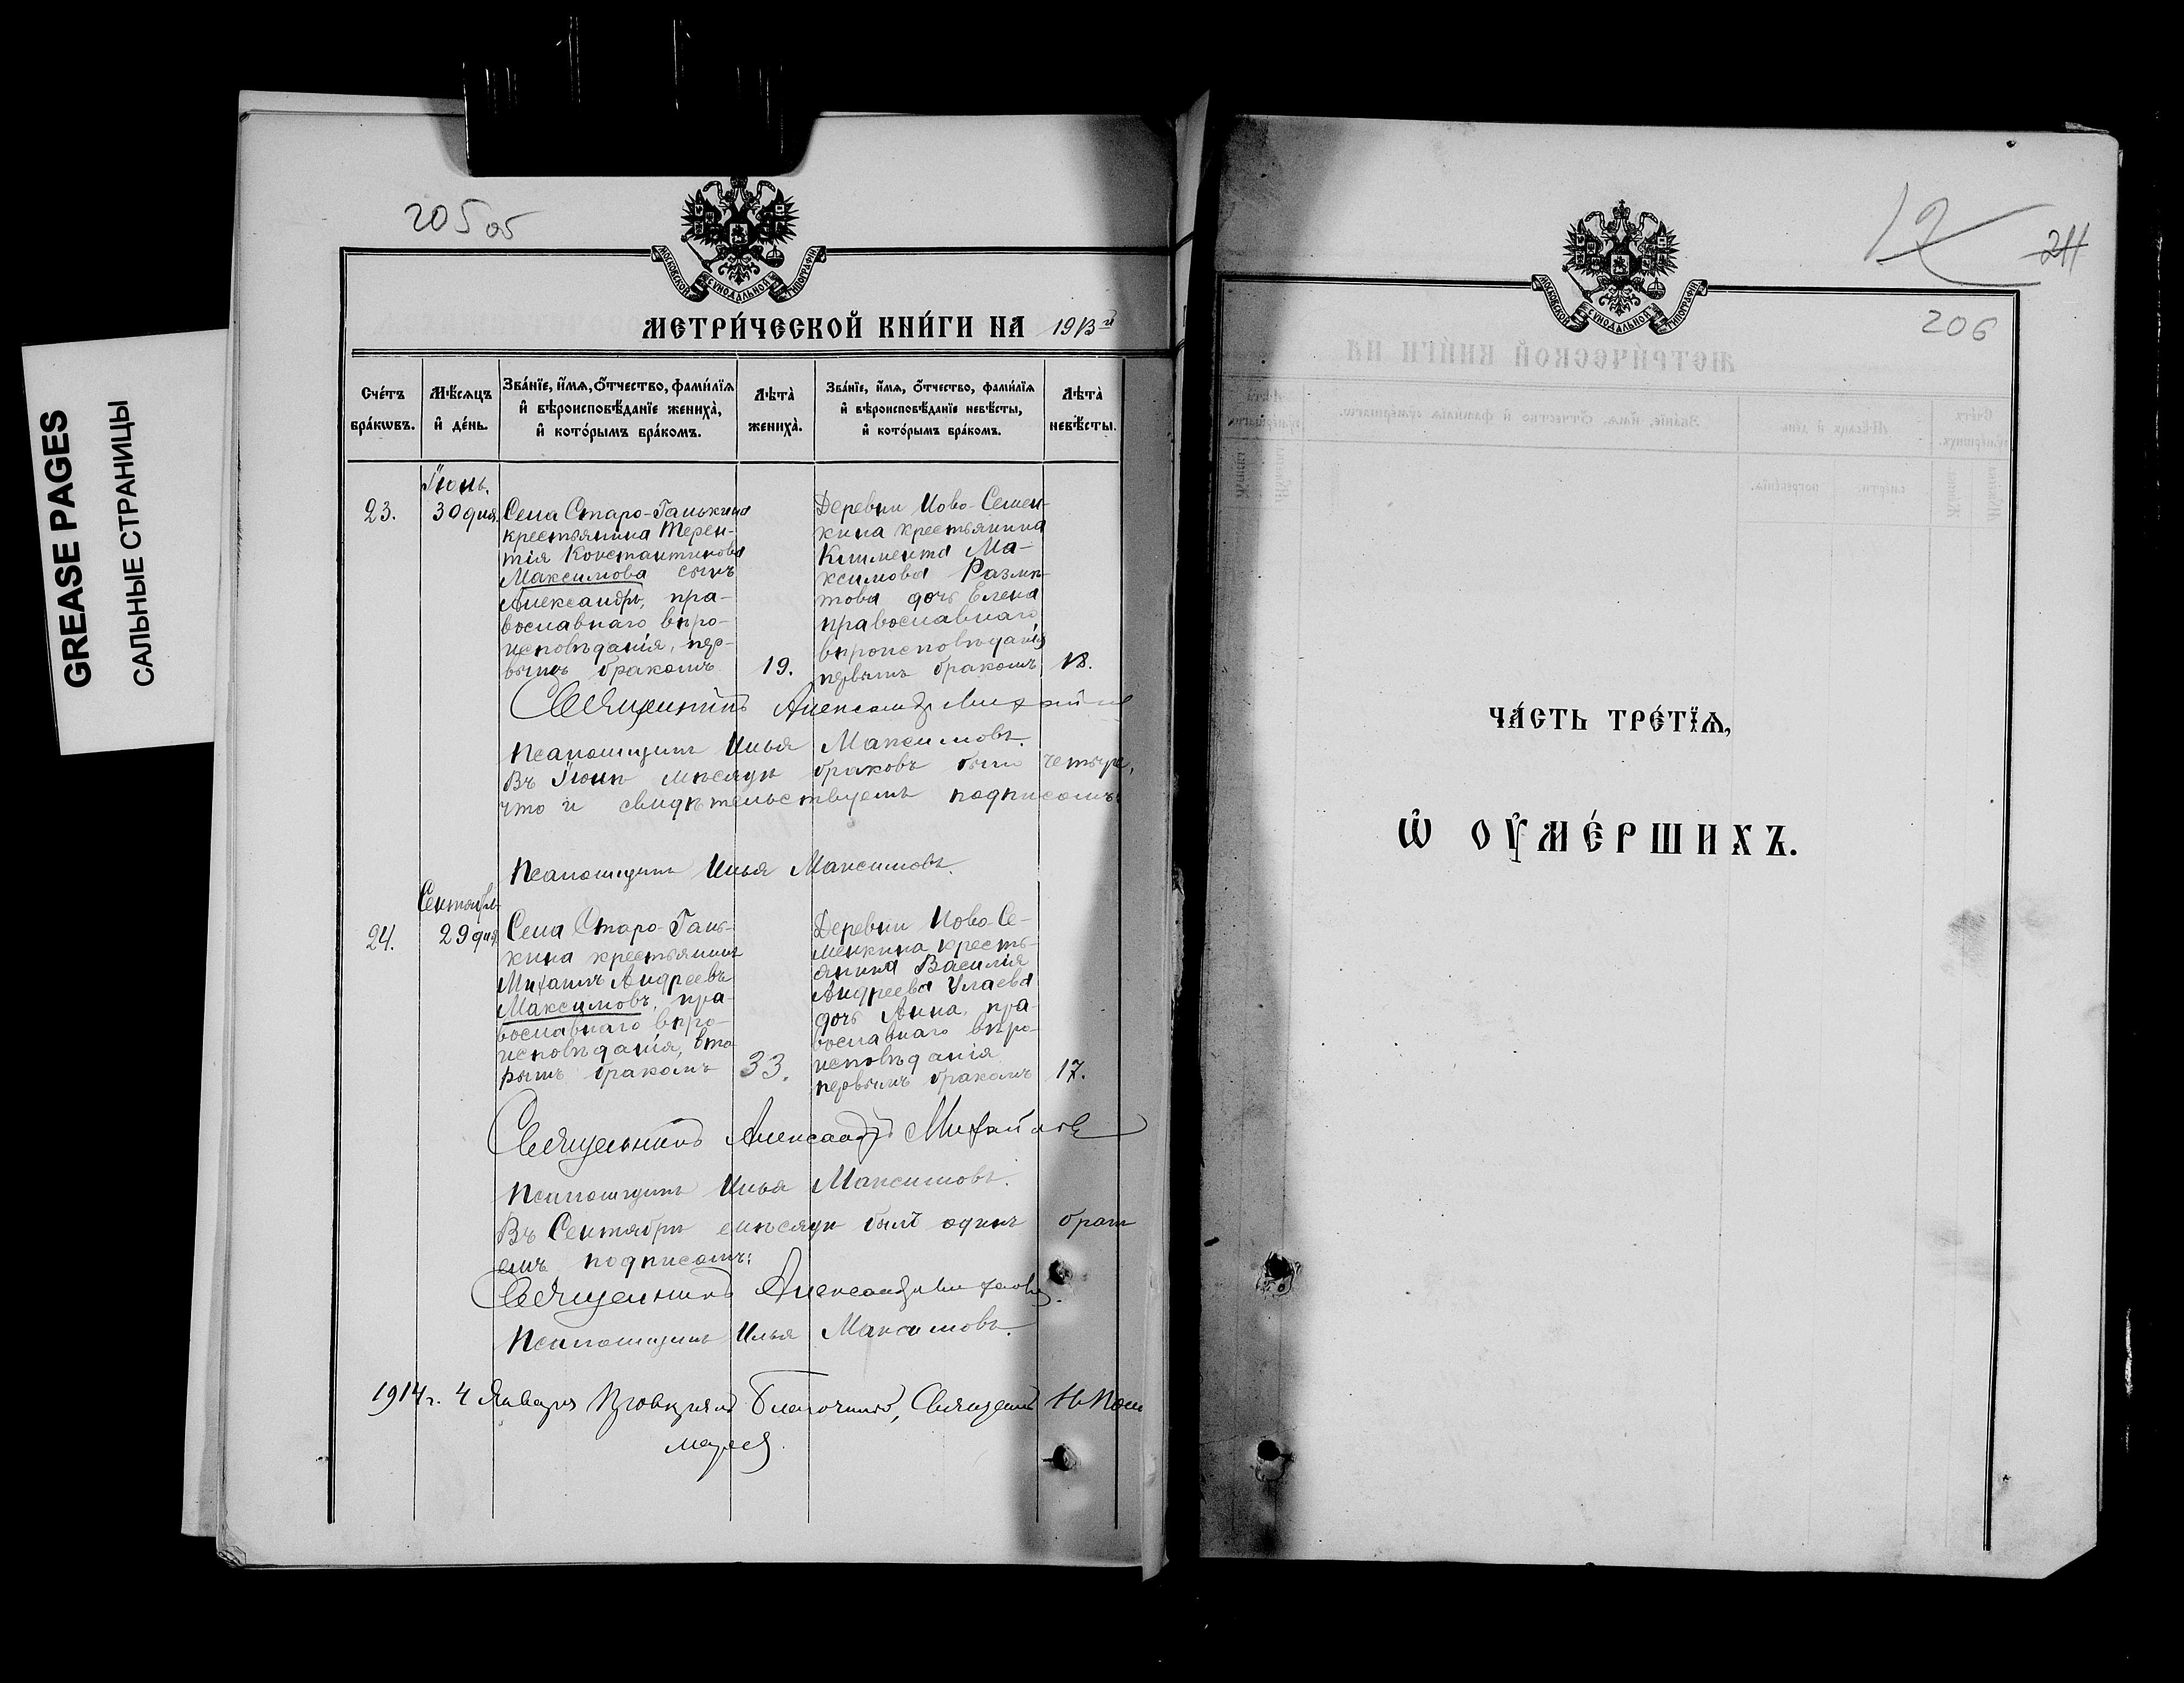 GREASE PAGES
САЛЬНЫЕ СТРАНИЦЫ
205 об
МОСКОВСКОЙ СѴНОДАЛЬНОЙ ТИПОГРАФІИ
МЕТРИ́ЧЕСКОЙ КНИ́ГИ НА 1913 й
Сче́тъ бра́кωвъ.
Мѣ́сѧцъ и҆ де́нь.
Зва́нїе, и҆́мѧ, ѻ҆́тчество, фами́лїѧ
и҆ вѣроисповѣ́данїе жениха̀,
и҆ кото́рымъ бра́комъ.
Лѣта̀ жениха̀.
Зва́нїе, и҆́мѧ, ѻ҆́тчество, фами́лїѧ
и҆ вѣроисповѣ́данїе невѣ́сты,
и҆ кото́рымъ бра́комъ.
Лѣта̀ невѣ́сты.
Іюнь.
23.
30 дня.
Села Старо-Ганькина
крестьянина Терен-
тія Константинова
Максимова сынъ
Александръ, пра-
вославнаго вѣро-
исповѣданія, пер-
вымъ бракомъ
19.
Деревни Ново-Семен-
кина крестьянина
Климента Ма-
ксимова
дочь Елена
православнаго
вѣроисповѣданія
первымъ бракомъ
18.
Священникъ Александръ Михайловъ
Псаломщикъ Илья Максимовъ.
Въ Іюнѣ мѣсяцѣ браковъ было четыре,
что и свидѣтельствуемъ подписомъ:
Псаломщикъ Илья Максимовъ.
Сентябрь
24.
29 дня.
Села Старо-Гань-
кина крестьянинъ
Михаилъ Андреевъ
Максимовъ, пра-
вославнаго вѣро-
исповѣданія, вто-
рымъ бракомъ
33.
Деревни Ново-Се-
менкина кресть-
янина Василія
Андреева Улаева
дочь Анна, пра-
вославнаго вѣро-
исповѣданія
первымъ бракомъ
17.
Священникъ Александръ Михайловъ
Псаломщикъ Илья Максимовъ.
Въ Сентябрѣ мѣсяцѣ былъ одинъ брак
емъ подписомъ:
Священникъ Александръ Михайловъ.
Псаломщикъ Илья Максимовъ.
1914 г. 4 Января Благочинный, Священникъ
12
211
206
МОСКОВСКОЙ СѴНОДАЛЬНОЙ ТИПОГРАФІИ
ЧА́СТЬ ТРЕ́ТЇѦ,
Ѽ ОУ҆МЕ́РШИХЪ.